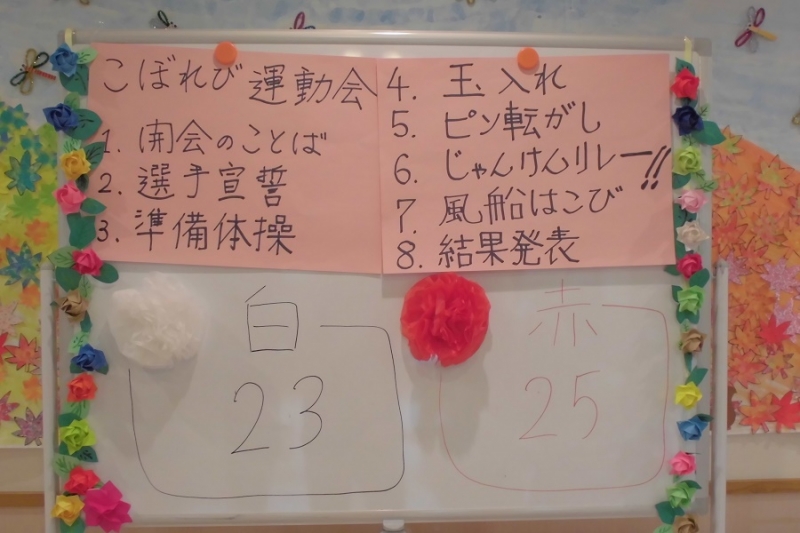 こぼれび運動会
1. 開会のことば
2. 選手宣誓
3. 準備体操
4. 玉入れ
5. ピン転がし
6. じゃんけんリレー!!
7. 風船はこび
8. 結果発表
白
23
赤
25